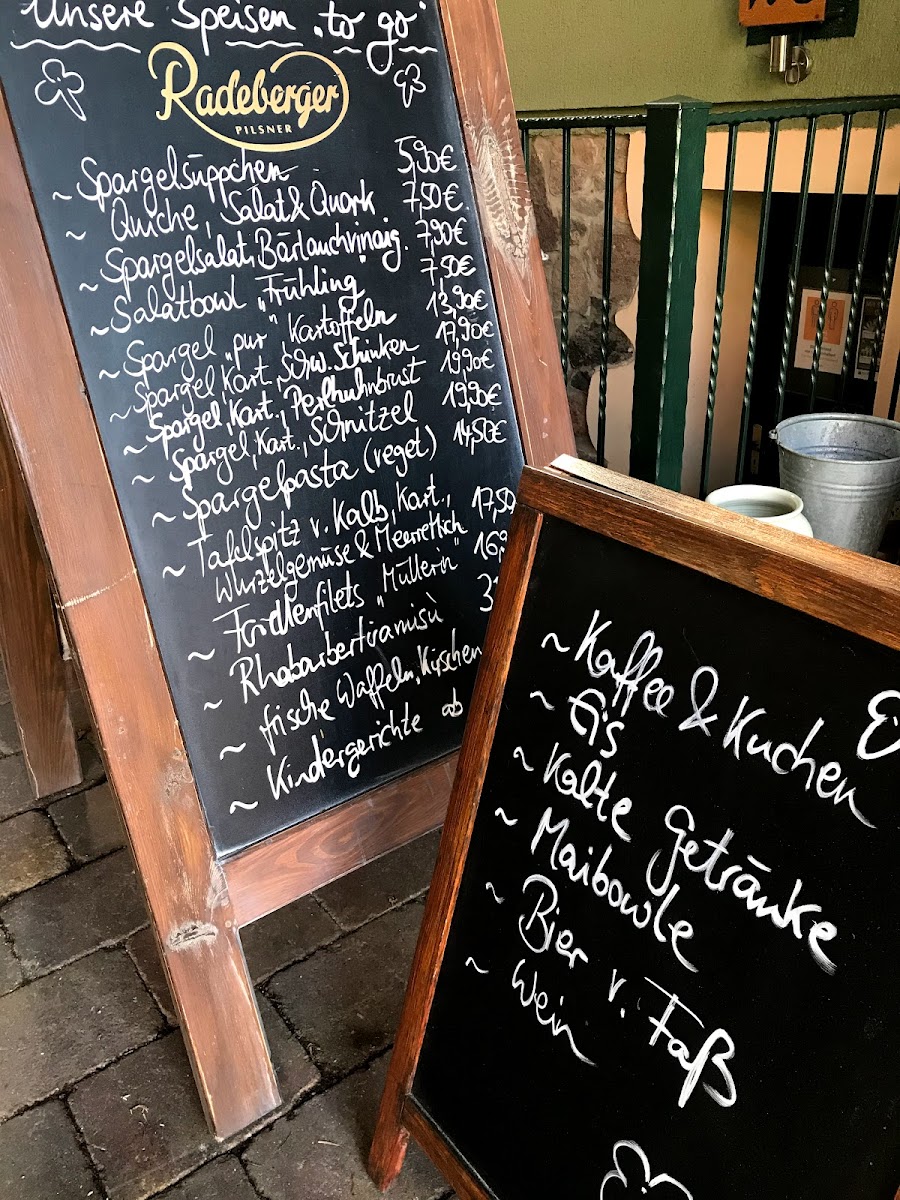 Unsere Speisen „to go“
Radeberger
PILSNER
~ Spargelsüppchen 5,90€
~ Quiche, Salat & Quark 7,50€
~ Spargelsalat, Bärlauchvinaig. 7,90€
~ Salatbowl „Frühling“ 7,50€
~ Spargel „pur“ Kartoffeln 13,90€
~ Spargel, Kart., Schw. Schinken 17,90€
~ Spargel, Kart., Perlhuhnbrust 19,90€
~ Spargel, Kart., Schnitzel 19,90€
~ Spargelpasta (veget) 14,50€
~ Tafelspitz v. Kalb, Kart., 17,50
Wurzelgemüse & Meerrettich
~ Forellenfilets „Müllerin“ 16,9
~ Rhabarbertiramisù
~ frische Waffeln, Kuchen
~ Kindergerichte ab
~ Kaffee & Kuchen
~ Eis
~ Kalte Getränke
~ Maibowle
~ Bier v. Faß
~ Wein